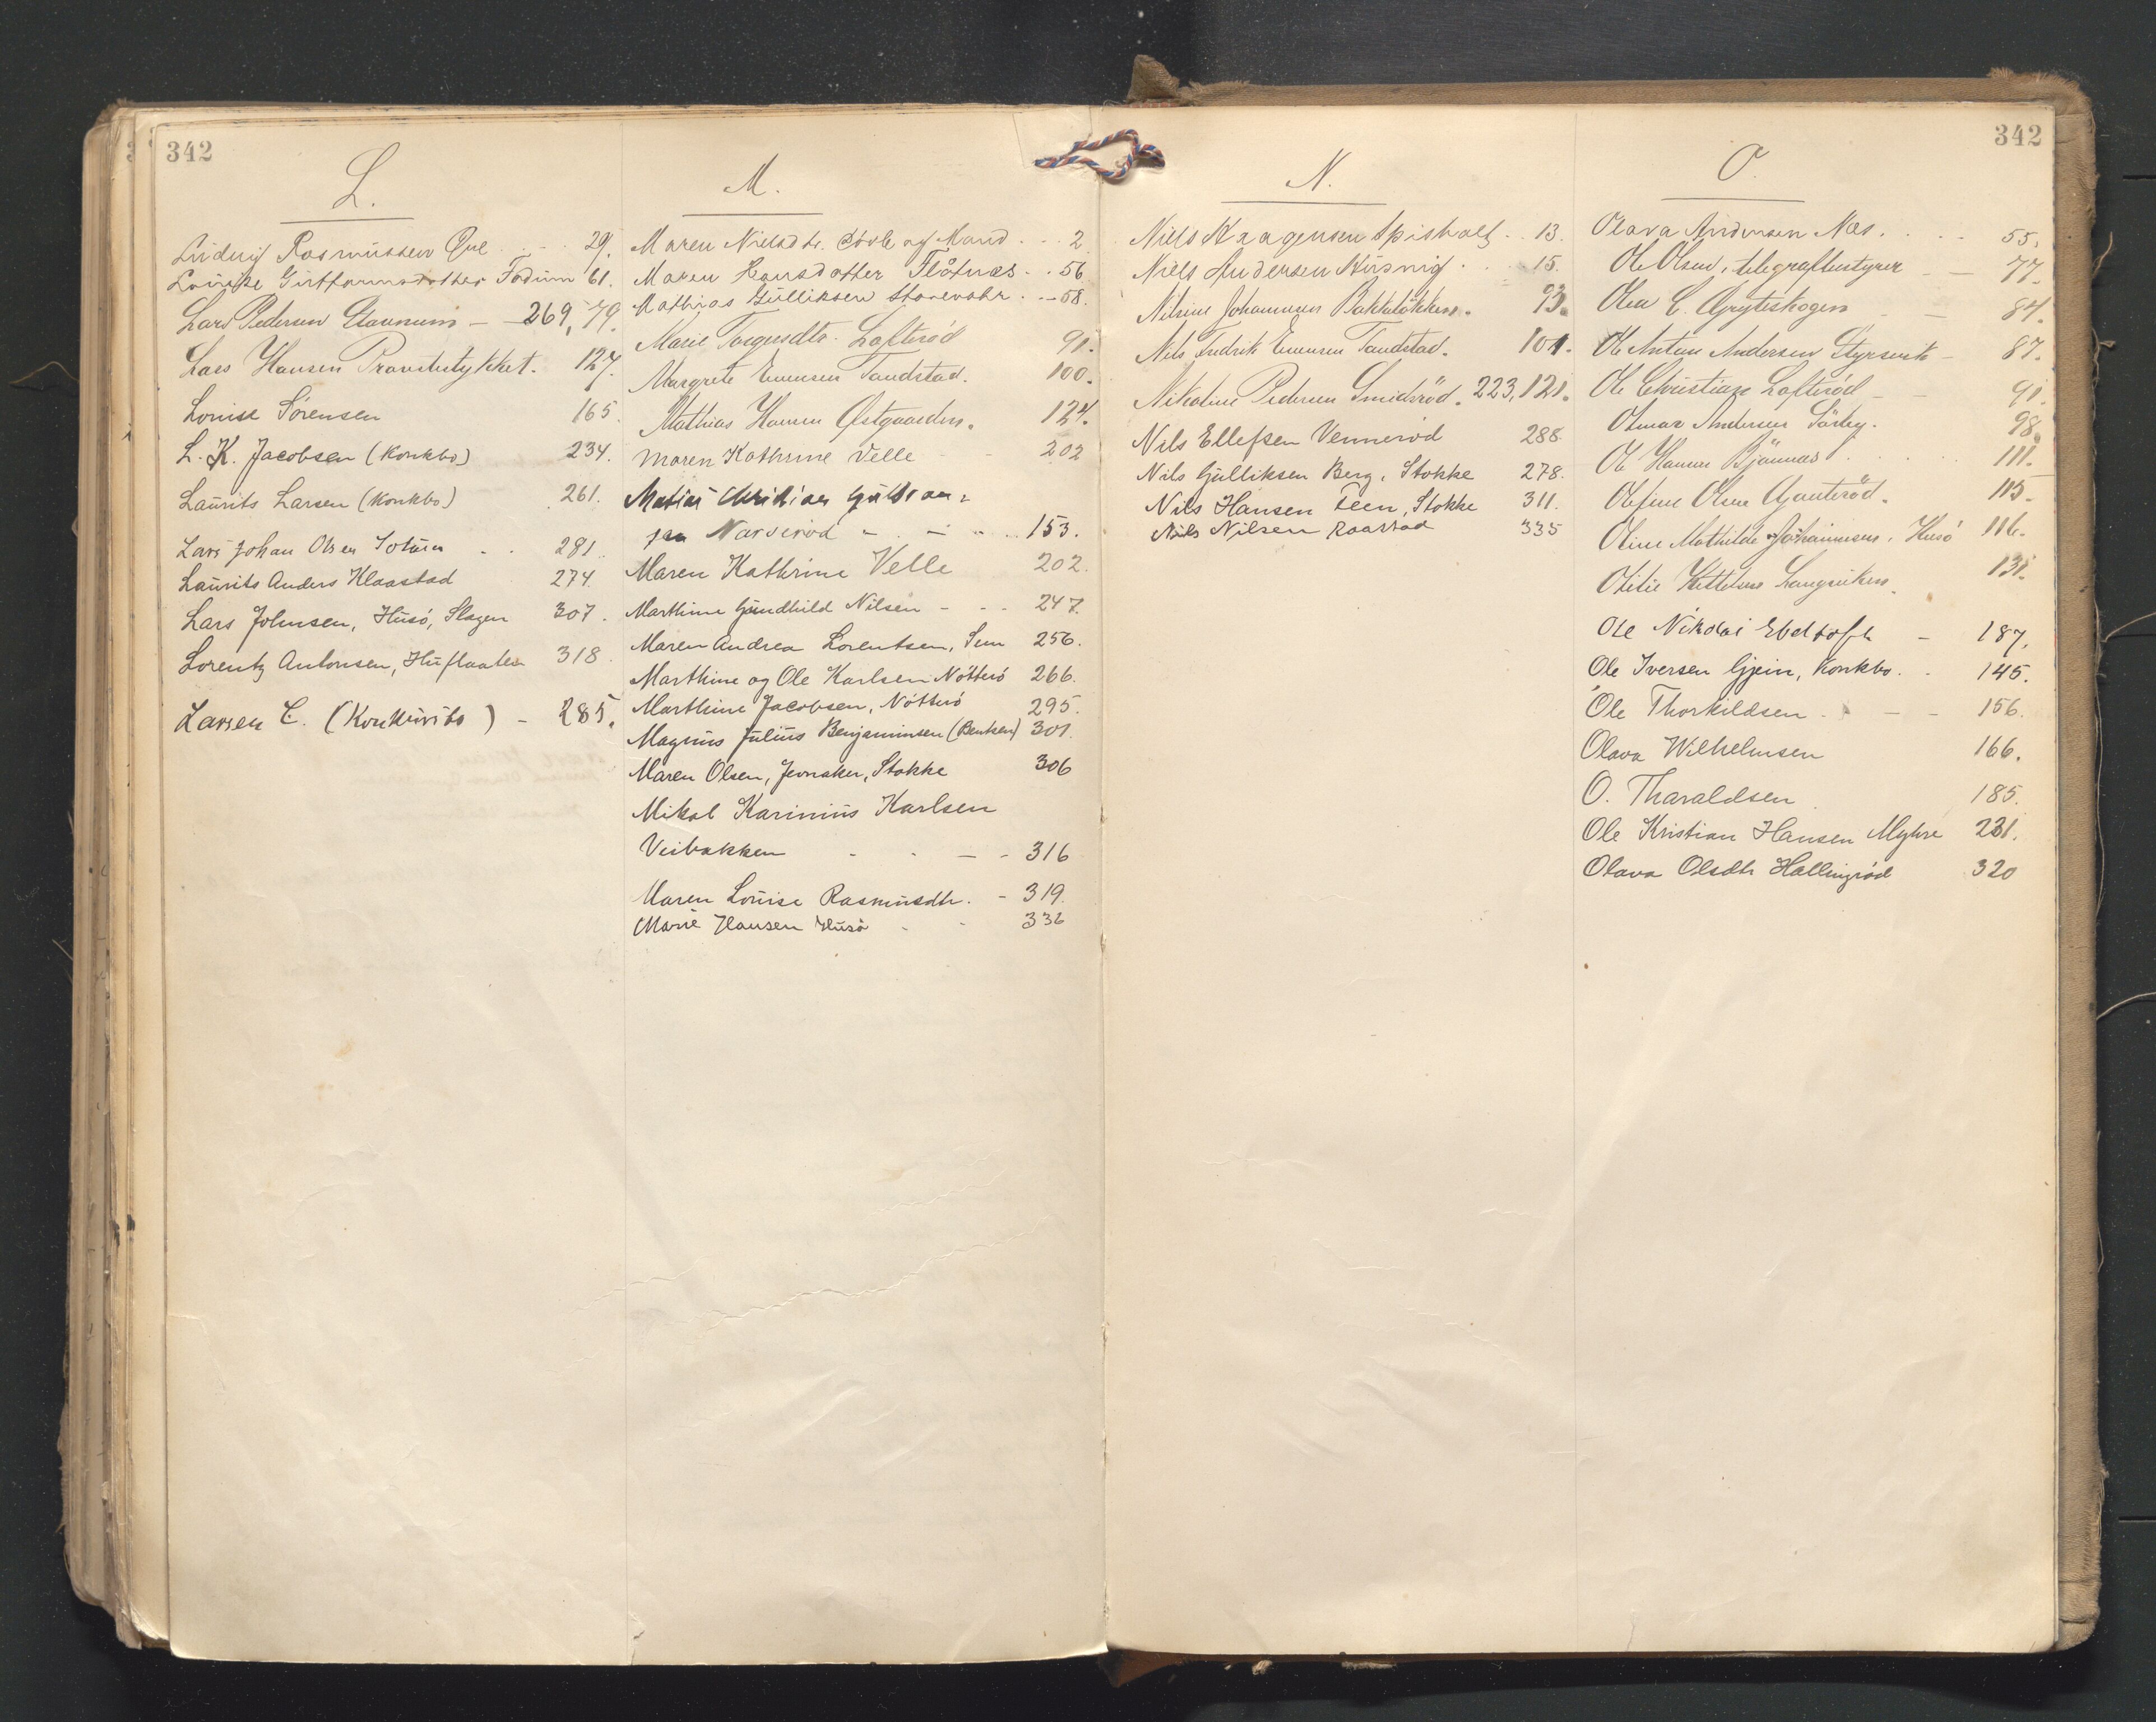 342
L.
Ludvig Rasmussen Qve 29.
Guttormsdatter Fadum 61.
Lars Pedersen Stavnum - 269, 79.
Lars Hansen Provstestykket. 127.
Louise Sørensen 165.
L. K. Jacobsen (Konkbo) 234.
Laurits Larsen (Konkbo) 261.
Lars Johan Olsen 281.
Laurits Anders Klaastad 274.
Lars Johnsen, Husö, Slagen 307.
Lorentz Antonsen, Huflaaten 318.
Larsen C. (Konkursbo) - 285.
M.
Maren Nielsdtr. og Mand 2
Maren Hansdatter Flåtnæs 56
Mathias Gulliksen 58.
Marie Lofterød 91.
Margrete Evensen Tandstad. 100.
Mathias Hansen Østgaarden. 124.
Maren Kathrine Velle 202
Matias Christian
Narverød 153.
Maren Kathrine Velle 202.
Marthine Gundhild Nilsen 247.
Maren Andrea Lorentsen, Sem 256.
Marthine og Ole Karlsen Nötterö 266.
Marthine Jacobsen, Nötterö 295.
Magnus Julius Benjaminsen (Bentsen) 301.
Maren Olsen, Jevnaker, Stokke 306
Mikal Karinius Karlsen
Veibakken 316
Maren Louise Rasmusdtr. 319.
Marie Hansen Husö 336
342
N.
Niels Kraagensen Spisholt 13.
Niels Andersen 15.
Nilsine Johannesen Bakkeløkken. 93.
Nils Fredrik Evensen Tandstad. 101.
Nikoline Pedersen Smidsröd. 223, 121.
Nils Ellefsen Venneröd 288.
Nils Gulliksen Berg, Stokke 278.
Nils Hansen Feen, Stokke 311.
Nils Nilsen Raastad 335
O.
Olava Andersen Næs. 55.
Ole Olsen, telegrafbestyrer 77.
Olea C. Grytiskogen 84.
Ole Anton Andersen Styrsvik 87.
Ole Christian Lofterød 91.
Olmar Andersen Särby. 98.
Ole Hansen Bjönnæs 111.
Olefine Olsen 115.
Oline Mathilde Johannesen, Husö 116.
Otilie Kittelsen 131.
Ole Nikolai Ebeltoft - 187.
Ole Iversen Gjein, Konkbo. 145.
Ole Thorkildsen 156.
Olava Wilhelmsen 166.
O. Tharaldsen 185.
Ole Kristian Hansen Myhre 231.
Olava Olsdtr Hallingröd 320